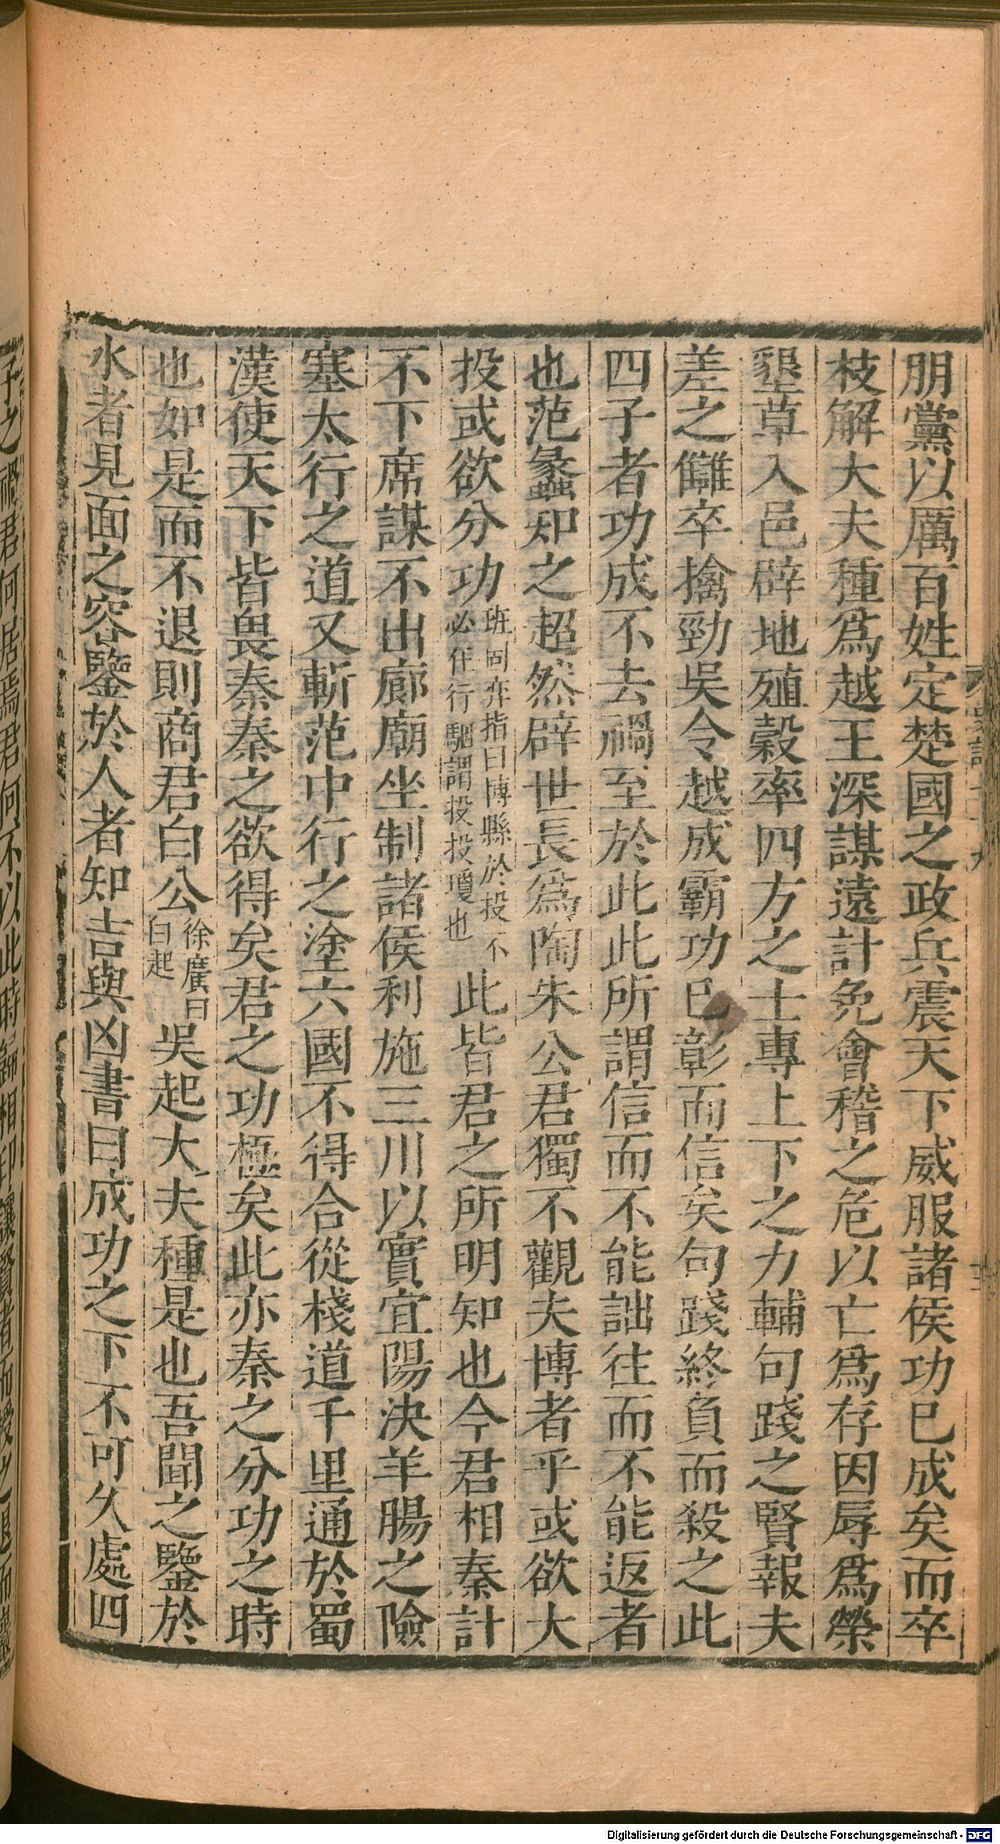 朋黨以厲百姓定楚國之政兵震天下威服諸侯功已成矣而卒
枝解大夫種爲越王深謀遠計免會稽之危以亡爲存因辱爲榮
墾草入邑辟地殖穀率四方之士專上下之力輔句踐之賢報夫
差之讎卒擒勁吳令越成霸功已彰而信矣句踐終負而殺之此
四子者功成不去禍至於此此所謂信而不能詘往而不能返者
也范蠡知之超然辟世長爲陶朱公君獨不觀夫博者乎或欲大
投或欲分功班固弈指曰博縣於投不必在行駰謂投投瓊也此皆君之所明知也今君相秦計
不下席謀不出廊廟坐制諸侯利施三川以實宜陽決羊腸之險
塞太行之道又斬范中行之塗六國不得合從棧道千里通於蜀
漢使天下皆畏秦秦之欲得矣君之功極矣此亦秦之分功之時
也如是而不退則商君白公徐廣曰白起吳起大夫種是也吾聞之鑒於
水者見面之容鑒於人者知吉與凶書曰成功之下不可久處四
子之禍君何居焉君何不以此時歸相印讓賢者而授之退而巖
Digitalisierung gefördert durch die Deutsche Forschungsgemeinschaft - DFG